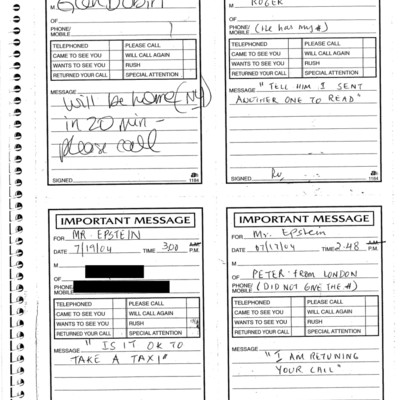 M Glen Dubin
OF
PHONE/
MOBILE
TELEPHONED PLEASE CALL
CAME TO SEE YOU WILL CALL AGAIN
WANTS TO SEE YOU RUSH
RETURNED YOUR CALL SPECIAL ATTENTION
MESSAGE
will be home (NY)
in 20 min -
please call
SIGNED 1184
M ROGER
OF
PHONE/
MOBILE (He has my #)
TELEPHONED PLEASE CALL
CAME TO SEE YOU WILL CALL AGAIN
WANTS TO SEE YOU RUSH
RETURNED YOUR CALL SPECIAL ATTENTION
MESSAGE "TELL HIM I SENT
ANOTHER ONE TO READ"
SIGNED 1184
IMPORTANT MESSAGE
FOR MR. EPSTEIN
DATE 7/19/04 TIME 300 P.M.
M
OF
PHONE/
MOBILE
TELEPHONED PLEASE CALL
CAME TO SEE YOU WILL CALL AGAIN
WANTS TO SEE YOU RUSH
RETURNED YOUR CALL SPECIAL ATTENTION
MESSAGE "IS IT OK TO
TAKE A TAXI"
IMPORTANT MESSAGE
FOR Mr. Epstein
DATE 07/17/04 TIME 2.48 P.M.
M
OF PETER from LONDON
PHONE/
MOBILE (DID NOT GIVE THE #)
TELEPHONED PLEASE CALL
CAME TO SEE YOU WILL CALL AGAIN
WANTS TO SEE YOU RUSH
RETURNED YOUR CALL SPECIAL ATTENTION
MESSAGE
"I AM RETUNING
YOUR CALL"